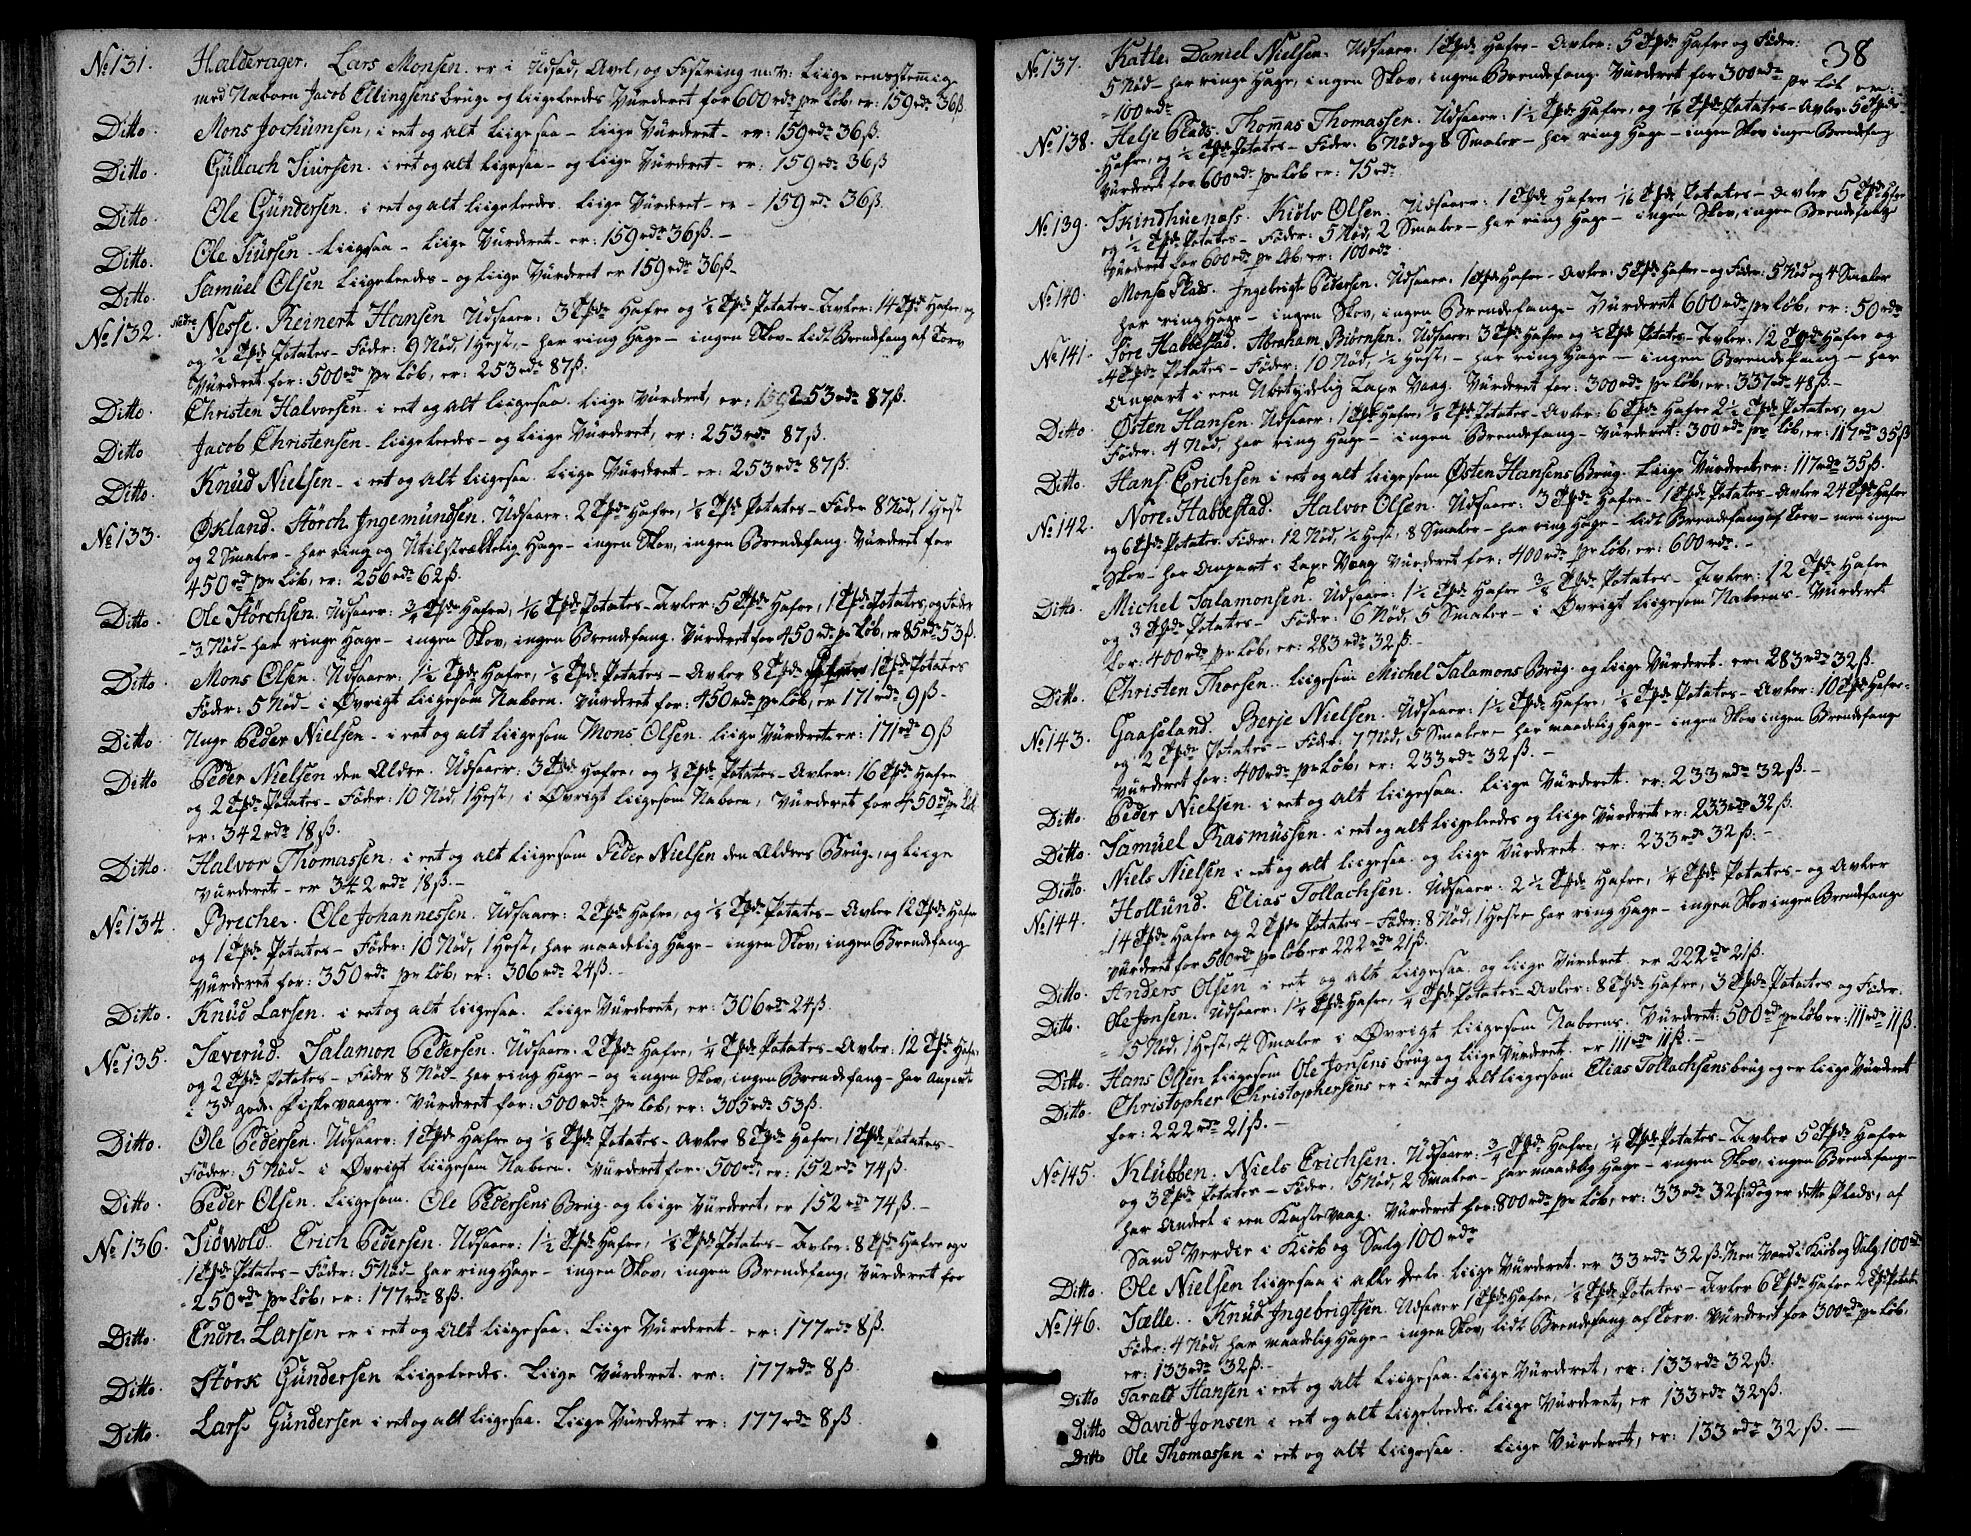 No 131. Halderager. Lars Monsen. er i Udsæd, Avel, og Fostring m: v: liige eensstemmig
med Naboen Jacob Ellingsens brug. og liigeleedes Vürderet for 600 rdr pr Løb, er: 159 rdr 36 ß.
Ditto. Mons Jochümsen, i eet og alt liigesaa – liige Vürderet – er: 159 rdr 36 ß.
Ditto Güllach Siursen. i eet og alt ligesaa – og liige Vürderet – er: 159 rdr 36 ß
Ditto Ole Gündersen. i eet og alt liigeleedes. liige Vürderet – er – 159 rdr 36 ß.
Ditto. Ole Siürsen – liigesaa – liige Vürderet – er: 159 rdr 36 ß. –
Ditto. Samüel Olsen liigeleedes – og liige Vürderet er 159 rdr 36 ß –
No 132. Nedre Nesse. Reinert Hansen Udsaaer: 3 Tpde Hafre og 1/8 Tpde Potates – Avler: 14 Tpde Hafre og
og 1/2 Tpde Potates – Föder: 9 Nöd, 1 Hest, – har ring Hage – ingen Skov – lidt Brendefang af Torv
Vürderet for: 500 rdr pr Løb, er: 253 rdr 87 ß.
Ditto. Christen Halvorsen. i eet og alt liigesaa. liige Vürderet, er: 253 rdr 87 ß.
Ditto Jacob Christensen – liigeleedes – og liige Vürderet, er: 253 rdr 87 ß.
Ditto. Knüd Nielsen – i eet og alt liigesaa. liige Vürderet – er: 253 rdr 87 ß.
No 133. Økland. Störch Ingemündsen. Udsaaer: 2 Tpde Hafre, 1/8 Tpde Potates – Föder 8 Nöd, 1 Hest
og 2 Smaler – har ring og Utilstrækkelig Hage – ingen Skov, ingen Brendefang. Vürderet for
450 rdr pr Løb, er: 256 rdr 62 ß.
Ditto. Ole Störchsen. Udsaaer: 3/4 Tpde Hafre, 1/16 Tpde Potates – Avler: 5 Tpde Hafre, 1 Tpde Potates, og Föder
3 Nöd – har ringe Hage – ingen Skov, ingen Brendefang. Vürderet for 450 rdr pr Løb, er 85 rdr 53 ß.
Ditto. Mons Olsen. Udsaaer: 1 1/2 Tpde Hafre, 1/8 Tpde Potates – Avler 8 Tpde Hafre 1 Tpde Potates
Föder: 5 Nöd – i Øvrigt liigesom Naboen. Vürderet for: 450 rdr pr Løb, er 171 rdr 9 ß –
Ditto Unge Peder Nielsen – i eet og alt liigesom Mons Olsen. liige Vürderet er: 171 rdr 9 ß
Ditto Peder Nielsen den Ældre. Udsaaer: 3 Tpde Hafre, og 1/8 Tpde Potates – Avler: 16 Tpde Hafre
og 2 Tpde Potates – Föder: 10 Nöd, 1 Hest, i Øvrigt liigesom Naboen, Vürderet for 450 rdr pr Løb
er: 342 rdr 18 ß.
Ditto. Halvor Thomassen. i eet og alt liigesom Peder Nielsen den Ældres Brug. og liige
Vürderet – er 342 rdr 18 ß. –
No 134. Brecher. Ole Johannessen. Udsaaer: 2 Tpde Hafre, og 1/8 Tpde Potates – Avler 12 Tpde Hafre
og 1 Tpde Potates – Föder: 10 Nöd, 1 Hest, har maadelig Hage – ingen Skov, ingen Brendefang
Vürderet for: 350 rdr pr Løb, er: 306 rdr 24 ß. –
Ditto. Knüd Larsen. i eet og alt liigesaa. liige Vürderet, er: 306 rdr 24 ß.
No 135. Sæverüd. Salamon Pedersen. Udsaaer: 2 Tpde Hafre, 1/4 Tpde Potates – Avler: 12 Tpde Hafre,
og 2 Tpde Potates – Föder 8 Nöd – har ring Hage – og ingen Skov, ingen Brendefang – har Anparter
i 3de gode fiskevaager. Vürderet for: 500 rdr pr Løb, er: 305 rdr 53 ß.
Ditto. Ole Pedersen. Udsaaer: 1 Tpde Hafre og 1/8 Tpde Potates – Avler 8 Tpde Hafre, 1 Tpde Potates –
Föder: 5 Nöd – i Øvrigt liigesom Naboen. Vürderet for 500 rdr, er: 152 rdr 74 ß.
Ditto. Peder Olsen. liigesom Ole Pedersens Brug. og liige Vürderet, er 152 rdr 74 ß. –
No 136. Sidwold. Erich Pedersen. Udsaaer: 1 1/2 Tpde Hafre, 1/8 Tpde Potates – Avler: 8 Tpde Hafre og
1 Tpde Potates – Föder: 5 Nöd – har ring Hage – ingen Skov, ingen Brendefang, Vürderet for
250 rdr pr Løb, er: 177 rdr 8 ß.
Ditto Endre Larsen er i eet og alt liigesaa. liige Vürderet – er: 177 rdr 8 ß.
Ditto. Störk Gündersen liigeleedes. liige Vürderet. er: 177 rdr 8 ß.
Ditto. Lars Gündersen i eet og alt liigesaa. liige Vürderet er: 177 rdr 8 ß.
38
No 137. Katle. Daniel Nielsen. Udsaaer: 1 Tpde Hafre – Avler: 5 Tpde Hafre og Föder:
5 Nöd – har ringe Hage, ingen Skov, ingen Brendefang. Vürderet for 300 rdr pr Løb er:
100 rdr
No 138. Helje Plads. Thomas Thomassen. Udsaaer: 1 1/2 Tpde Hafre, og 1/16 Tpde Potates – Avler: 5 Tpde
Hafre, og 1/2 Tpde Potates – Föder: 6 Nöd og 8 Smaler – har ring Hage – ingen Skov ingen Brendefang
Vürderet for 600 rdr pr Løb er: 75 rdr
No 139. Skindhuenæss. Kiöln Olsen. Udsaaer: 1 Tpde Hafre 1/16 Tpde Potates – Avler 5 Tpde Hafre
og 1/2 Tpde Potates – Föder: 5 Nöd, 2 Smaler – har ring Hage – ingen Skov, ingen Brendefang
Vürderet for 600 rdr pr Løb, er: 100 rdr
No 140. Monse Plads. Ingebrigt Pedersen. Udsaaer: 1 Tpde Hafre – Avler: 5 Tpde Hafre – og Föder: 5 Nöd og 4 Smaler
har ring Hage – ingen Skov, ingen Brendefang – Vürderet 600 rdr pr Løb, er: 50 rdr
No 141. Söre Habbestad. Abraham Biörnsen. Udsaaer: 3 Tpde Hafre og 1/2 Tpde Potates – Avler: 12 Tpde Hafre og
4 Tpde Potates – Föder: 10 Nöd, 1/2 Hest, – har ring Hage – ingen Brendefang – har
Anpart i een Ubetydelig Laxe Vaag. Vürderet for: 300 rdr pr Løb, er: 337 rdr 48 ß. –
Ditto. Østen Hansen. Udsaaer: 1 Tpde Hafre, 1/8 Tpde Potates – Avler: 6 Tpde Hafre 2 1/2 Tpde Potates, og
Föder: 4 Nöd, har ring Hage – ingen Brendefang – Vürderet: 300 rdr pr Løb, er: 117 rdr 35 ß
Ditto. Hans Erichsen i eet og alt liigesom Østen Hansens Brug. liige Vürderet, er: 117 rdr 35 ß.
No 142. Nore Habbestad. Halvor Olsen. Udsaaer: 3 Tpde Hafre – 1 Tpde Potates – Avler 24 Tpde Hafre
og 6 Tpde Potates. Föder: 12 Nöd, 1/2 Hest, 8 Smaler – har ring Hage – lidt Brendefang af Torv – men ingen
Skov – har Anpart i Laxe Vaag Vürderet for: 400 rdr pr Løb, er: 600 rdr. –
Ditto. Michel Salamonsen. Udsaaer: 1 1/2 Tpde Hafre 3/8 Tpde Potates – Avler: 12 Tpde Hafre
og 3 Tpde Potates – Föder: 6 Nöd, 5 Smaler – i Øvrigt liigesom Naboens – Vürderet
for: 400 rdr pr Løb, er: 283 rdr 32 ß. –
Ditto. Christen Thorsen. liigesom Michel Salamons Brug. og liige Vürderet. er: 283 rdr 32 ß.
No 143. Gaaseland. Berje Nielsen. Udsaaer: 1 1/2 Tpde Hafre, 1/8 Tpde Potates – Avler: 10 Tpde Hafre –
og 2 Tpde Potates – Föder: 7 Nöd, 5 Smaler – har maadelig Hage – ingen Skov ingen Brendefang
Vürderet for: 400 rdr pr Løb, er: 233 rdr 32 ß. –
Ditto. Peder Nielsen. i eet og alt liigesaa. liige Vürderet. er: 233 rdr 32 ß. –
Ditto. Samüel Rasmüssen. i eet og alt liigeleedes og liige Vürderet er: 233 rdr 32 ß.
Ditto. Niels Nielsen i eet og alt liigesaa. og liige Vürderet. er: 233 rdr 32 ß. –
No 144. Hollünd. Elias Tollachsen. Udsaaer: 2 1/2 Tpde Hafre, 1/4 Tpde Potates – og Avler
14 Tpde Hafre og 2 Tpde Potates – Föder: 8 Nöd, 1 Hest – har ring Hage – ingen Skov ingen Brendefang
Vürderet for 500 rdr pr Løb er 222 rdr 21 ß.
Ditto. Anders Olsen i eet og alt liigesaa. og liige Vürderet er 222 rdr 21 ß.
Ditto. Ole Jonsen. Udsaaer: 1 1/4 Tpde Hafre, 1/4 Tpde Potates – Avler: 8 Tpde Hafre, 3 Tpde Potates og Föder.
5 Nöd, 1 Hest, 4 Smaler i Øvrigt liigesom Naboens. Vürderet: 500 rdr pr Løb er: 111 rdr 11 ß.
Ditto. Hans Olsen liigesom Ole Jonsens brug og liige Vürderet. er 111 rdr 11 ß. –
Ditto. Christopher Christophersens er i eet og alt liigesom Elias Tollachsens brug og er liige Vürderet
for: 222 rdr 21 ß. –
No 145. Klübben. Niels Erichsen. Udsaaer: 3/4 Tpde Hafre, 1/4 Tpde Potates – Avler 5 Tpde Hafre
og 3 Tpde Potates – Föder. 5 Nöd, 2 Smaler – har maadelig Hage – ingen Skov, ingen Brendefang –
har Andeel i een Kastevaag. Vürderet for: 800 rdr pr Løb, er: 33 rdr 32 ß. dog er dette Plads, af
Sand Verdie i Kiöb og Salg 100 rdr
Ditto. Ole Nielsen liigesaa i alle deele. liige Vürderet. er 33 rdr 32 ß. Men Værd i Kiöb og Salg 100 rdr
No 146. Sælle. Knüd Ingebrigtsen. Udsaaer 1 Tpde Hafre, 1/8 Tpde Potates – Avler 6 Tpde Hafre 2 Tpde Potates
Föder: 4 Nöd, har maadelig Hage – ingen Skov, lidt Brendefang af Torv. Vürderet for 300 rdr pr Løb,
er: 133 rdr 32 ß. –
Ditto Taralt Hansen i eet og alt liigesaa. liige Vürderet, er: 133 rdr 32 ß.
Ditto David Jonsen i eet og alt liigeleedes. liige Vürderet, er 133 rdr 32 ß.
Ditto Ole Thomassen i eet og alt liigesaa. liige Vürderet, er: 133 rdr 32 ß. –